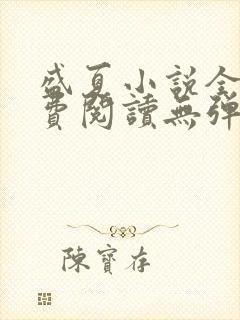 盛夏小說全
費閱讀無彈
陳寶存